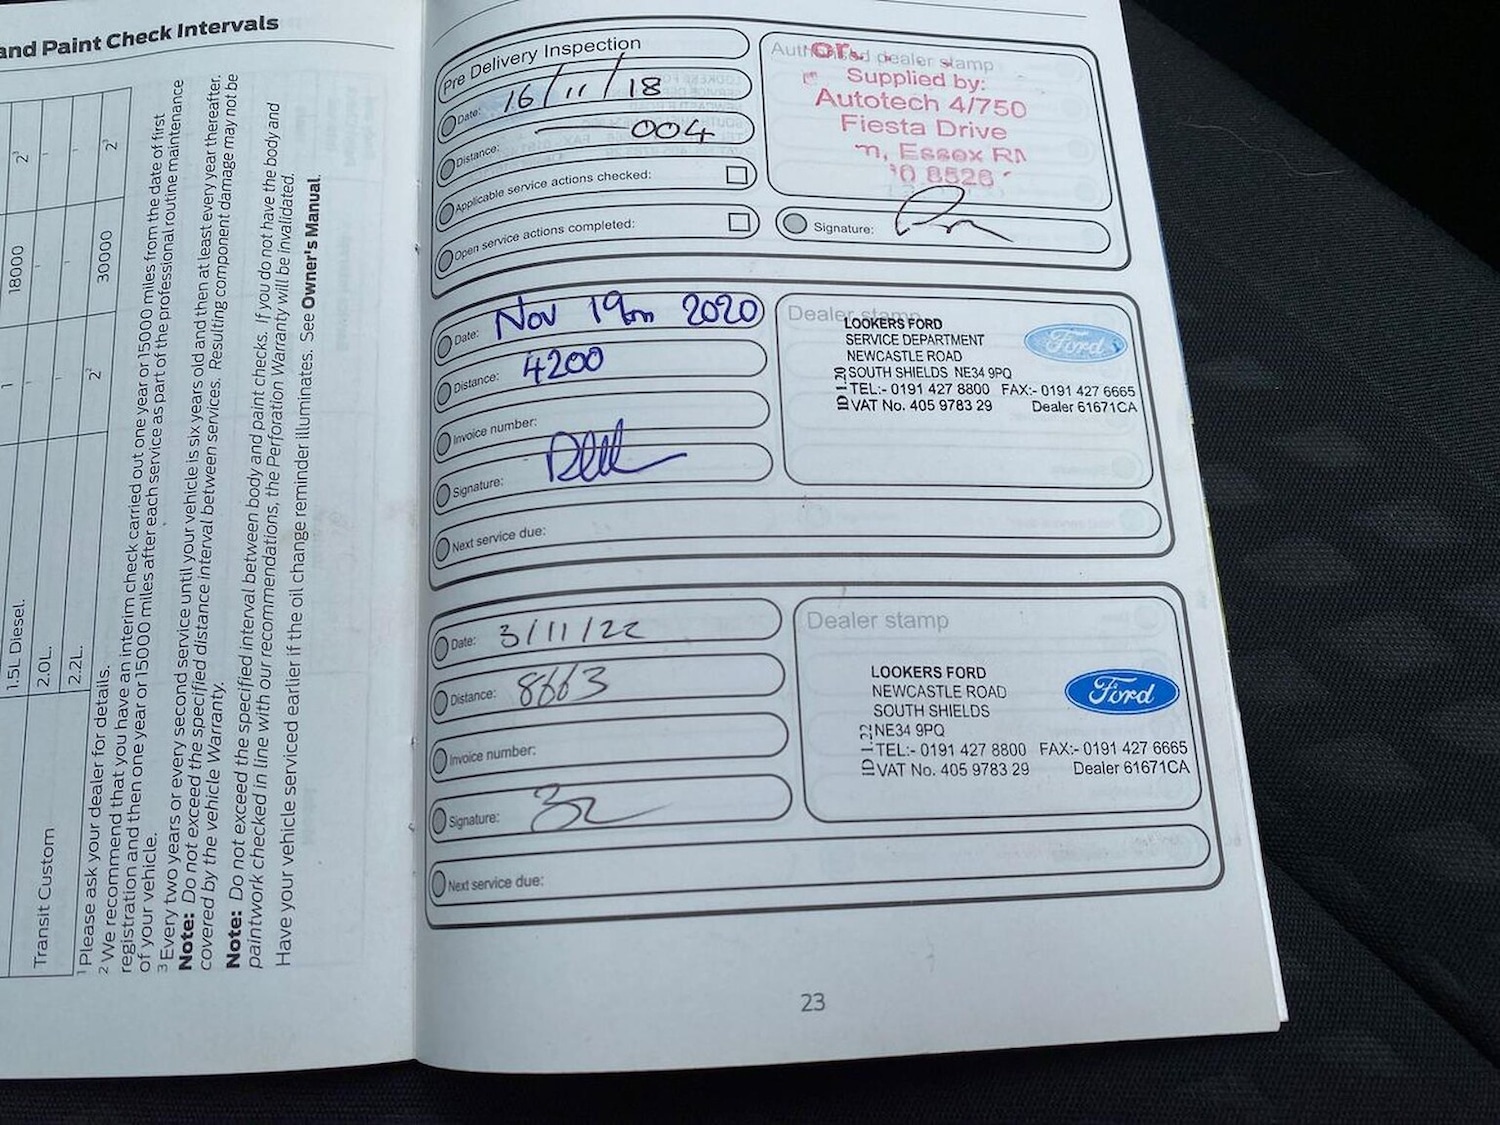 and Paint Check Intervals
1.5L Diesel. 1 18000 2³
2.0L. - - -
2.2L. - - -
Transit Custom 2² 30000 2³
¹ Please ask your dealer for details.
² We recommend that you have an interim check carried out one year or 15000 miles from the date of first
registration and then one year or 15000 miles after each service as part of the professional routine maintenance
of your vehicle.
³ Every two years or every second service until your vehicle is six years old and then at least every year thereafter.
Note: Do not exceed the specified distance interval between services. Resulting component damage may not be
covered by the vehicle Warranty.
Note: Do not exceed the specified interval between body and paint checks. If you do not have the body and
paintwork checked in line with our recommendations, the Perforation Warranty will be invalidated.
Have your vehicle serviced earlier if the oil change reminder illuminates. See Owner's Manual.
Pre Delivery Inspection
Date: 16/11/18
Distance: 004
Applicable service actions checked:
Open service actions completed:
Authorised dealer stamp
Supplied by:
Autotech 4/750
Fiesta Drive
Essex
8526
Signature:
Date: Nov 19th 2020
Distance: 4200
Invoice number:
Signature:
Next service due:
Dealer stamp
LOOKERS FORD
SERVICE DEPARTMENT
NEWCASTLE ROAD
SOUTH SHIELDS NE34 9PQ
TEL:- 0191 427 8800 FAX:- 0191 427 6665
VAT No. 405 9783 29 Dealer 61671CA
ID 1.20
Ford
Date: 3/11/22
Distance: 8663
Invoice number:
Signature:
Next service due:
Dealer stamp
LOOKERS FORD
NEWCASTLE ROAD
SOUTH SHIELDS
NE34 9PQ
TEL:- 0191 427 8800 FAX:- 0191 427 6665
VAT No. 405 9783 29 Dealer 61671CA
ID 1.22
Ford
23